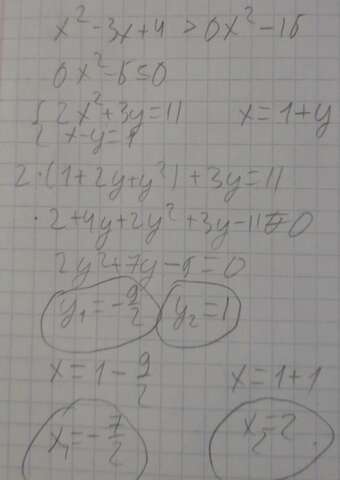 x²-3x+4 > 0x²-16
0x²-6≤0
{ 2x²+3y=11 x=1+y
x-y=1
2·(1+2y+y²)+3y=11
·2+4y+2y²+3y-11=0
2y²+7y-9=0
y₁=-9/2 y₂=1
x=1-9/2 x=1+1
x₁=-7/2 x₂=2